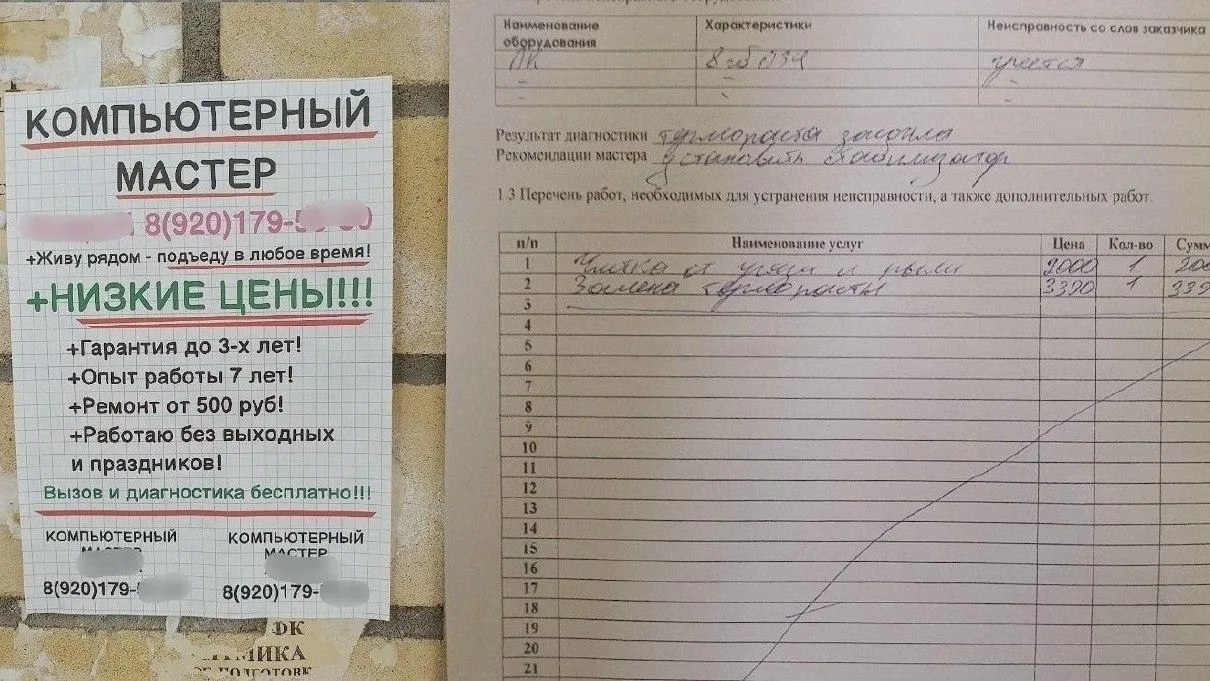 КОМПЬЮТЕРНЫЙ
МАСТЕР
8(920)179-
+Живу рядом - подъеду в любое время!
+НИЗКИЕ ЦЕНЫ!!!
+Гарантия до 3-х лет!
+Опыт работы 7 лет!
+Ремонт от 500 руб!
+Работаю без выходных
и праздников!
Вызов и диагностика бесплатно!!!
КОМПЬЮТЕРНЫЙ
МАСТЕР
8(920)179-
КОМПЬЮТЕРНЫЙ
МАСТЕР
8(920)179-
Наименование оборудования Характеристики Неисправность со слов заказчика
ПК 8 гб ОЗУ греется
Результат диагностики термопаста засохла
Рекомендации мастера установить стабилизатор
1.3 Перечень работ, необходимых для устранения неисправности, а также дополнительных работ
п/п Наименование услуг Цена Кол-во Сумм
1 Чистка от грязи и пыли 2000 1 200
2 Замена термопасты 3390 1 339
3
4
5
6
7
8
9
10
11
12
13
14
15
16
17
18
19
20
21